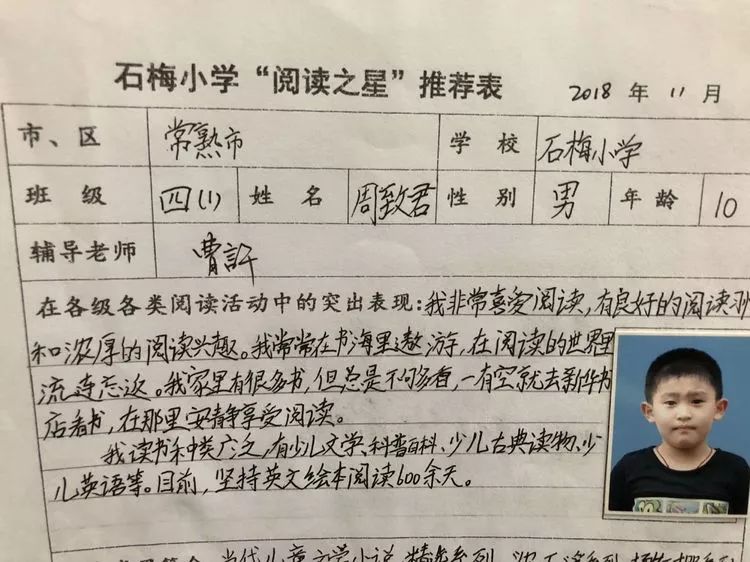 石梅小学“阅读之星”推荐表
2018 年 11 月
市、区 常熟市 学 校 石梅小学
班 级 四(1) 姓 名 周致君 性 别 男 年 龄 10
辅导老师 曹
在各级各类阅读活动中的突出表现:我非常喜爱阅读,有良好的阅读
和浓厚的阅读兴趣。我常常在书海里遨游,在阅读的世界里
流连忘返。我家里有很多书,但总是不够看,一有空就去新华书
店看书,在那里安静享受阅读。
我读书种类广泛,有少儿文学、科普百科、少儿古典读物、少
儿英语等。目前,坚持英文绘本阅读600余天。
当代儿童文学小说